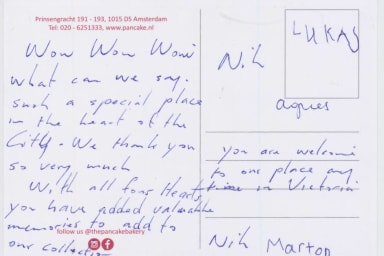 Prinsengracht 191 - 193, 1015 DS Amsterdam
Tel: 020 - 6251333, www.pancake.nl
Wow Wow Wow
what can we say.
such a special place
in the heart of the
City. We thank you
so very much
With all four Hearts
you have added valuable
memories to add to
our
follow us @thepancakebakery
LUKAS
Nik
agnes
you are welcome
to our place any
in Victoria
Nik Marton